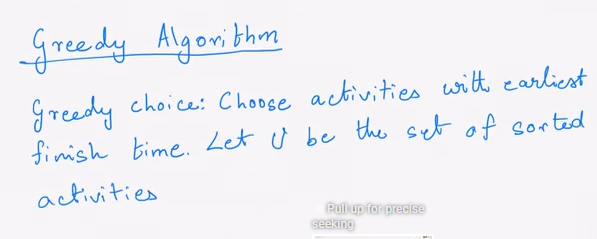 Greedy Algorithm
Greedy choice: Choose activities with earliest
finish time. Let U be the set of sorted
activities
Pull up for precise
seeking